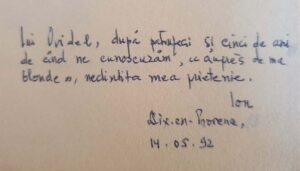 Lui Ovidel, după patruzeci și cinci de ani
de când ne cunoscuzăm, « auprès de ma
blonde », neclintita mea prietenie.
Ion
Aix-en-Provence,
14.05.92